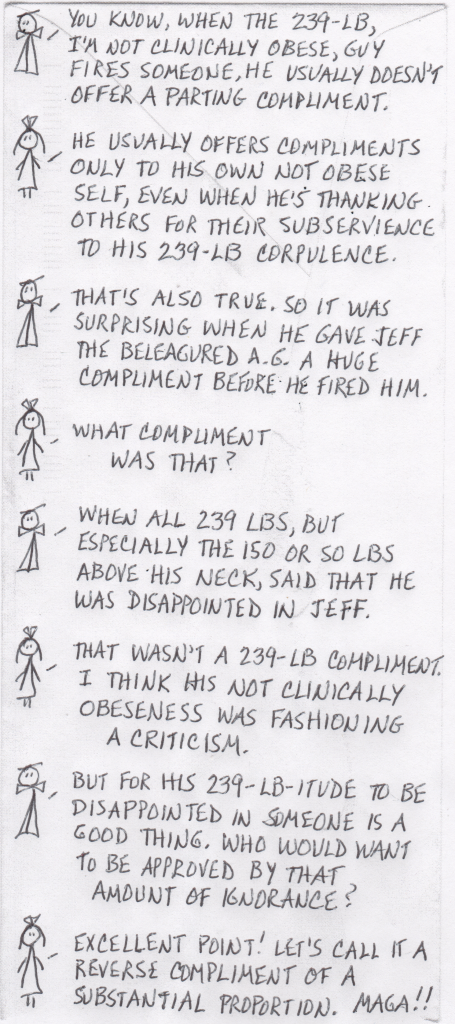 YOU KNOW, WHEN THE 239-LB,
I'M NOT CLINICALLY OBESE, GUY
FIRES SOMEONE, HE USUALLY DOESN'T
OFFER A PARTING COMPLIMENT.
HE USUALLY OFFERS COMPLIMENTS
ONLY TO HIS OWN NOT OBESE
SELF, EVEN WHEN HE'S THANKING
OTHERS FOR THEIR SUBSERVIENCE
TO HIS 239-LB CORPULENCE.
THAT'S ALSO TRUE. SO IT WAS
SURPRISING WHEN HE GAVE JEFF
THE BELEAGURED A.G. A HUGE
COMPLIMENT BEFORE HE FIRED HIM.
WHAT COMPLIMENT
WAS THAT?
WHEN ALL 239 LBS, BUT
ESPECIALLY THE 150 OR SO LBS
ABOVE HIS NECK, SAID THAT HE
WAS DISAPPOINTED IN JEFF.
THAT WASN'T A 239-LB COMPLIMENT.
I THINK HIS NOT CLINICALLY
OBESENESS WAS FASHIONING
A CRITICISM.
BUT FOR HIS 239-LB-ITUDE TO BE
DISAPPOINTED IN SOMEONE IS A
GOOD THING. WHO WOULD WANT
TO BE APPROVED BY THAT
AMOUNT OF IGNORANCE?
EXCELLENT POINT! LET'S CALL IT A
REVERSE COMPLIMENT OF A
SUBSTANTIAL PROPORTION. MAGA!!